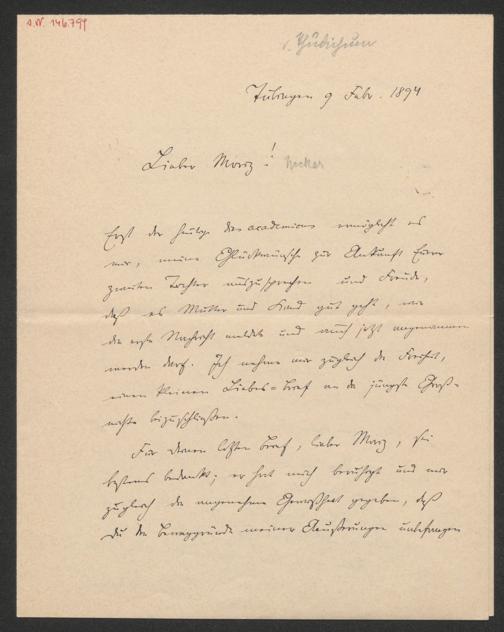 A.N. 146.799
v. Thudichum
Tübingen 9 Febr. 1894
Lieber Moriz! Necker
Erst der heutige dies academicus ermöglicht es
mir, meine Glückwünsche zur Ankunft Eurer
zweiten Tochter auszusprechen und Freude,
daß es Mutter und Kind gut geht, wie
die erste Nachricht meldete und auch jetzt angenommen
werden darf. Ich nehme mir zugleich die Freiheit,
einen kleinen Liebes-Brief an die jüngste
beizuschließen.
Für Deinen letzten Brief, lieber Moriz, sei
bestens bedankt; er hat mich beruhigt und mir
zugleich die angenehme Gewißheit gegeben, daß
Du die Beweggründe meiner Äußerungen unbefangen